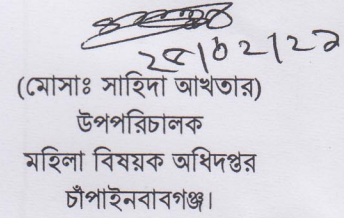 (মোসাঃ সাহিদা আখতার)
উপপরিচালক
মহিলা বিষয়ক অধিদপ্তর
চাঁপাইনবাবগঞ্জ।